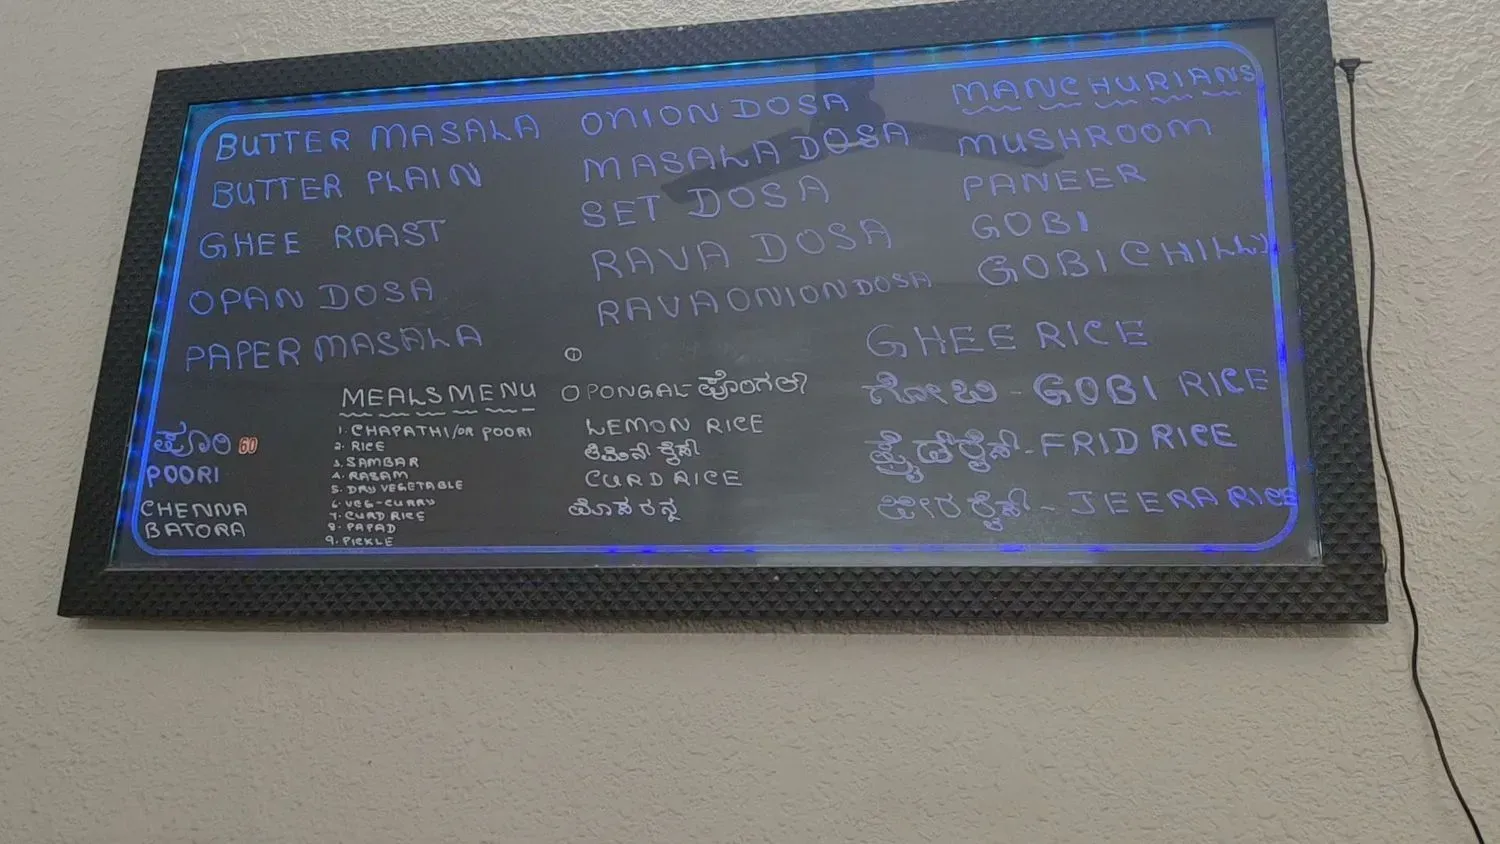 BUTTER MASALA
BUTTER PLAIN
GHEE ROAST
OPAN DOSA
PAPER MASALA
ONION DOSA
MASALA DOSA
SET DOSA
RAVA DOSA
RAVA ONION DOSA
MANCHURIANS
MUSHROOM
PANEER
GOBI
GOBI CHILLY
ಪೂರಿ 60
POORI
CHENNA
BATORA
MEALS MENU
1. CHAPATHI/OR POORI
2. RICE
3. SAMBAR
4. RASAM
5. DRY VEGETABLE
6. VEG-CURRY
7. CURD RICE
8. PAPAD
9. PICKLE
PONGAL-ಪೊಂಗಲ್
LEMON RICE
CURD RICE
GHEE RICE
ಗೋಬಿ - GOBI RICE
ಫ್ರೈಡ್ ರೈಸ್ - FRID RICE
ಜೀರ ರೈಸ್ - JEERA RICE